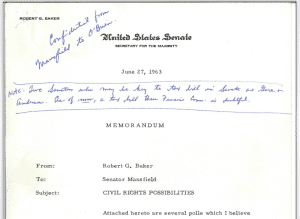 ROBERT G. BAKER
Confidential from
Mansfield to O'Brien
United States Senate
SECRETARY FOR THE MAJORITY
June 27, 1963
Note: Two Senators who may be key to tax bill in Senate are Gore &
Anderson. As of now, a tax bill from Finance Com. is doubtful.
MEMORANDUM
From: Robert G. Baker
To: Senator Mansfield
Subject: CIVIL RIGHTS POSSIBILITIES
Attached hereto are several polls which I believe